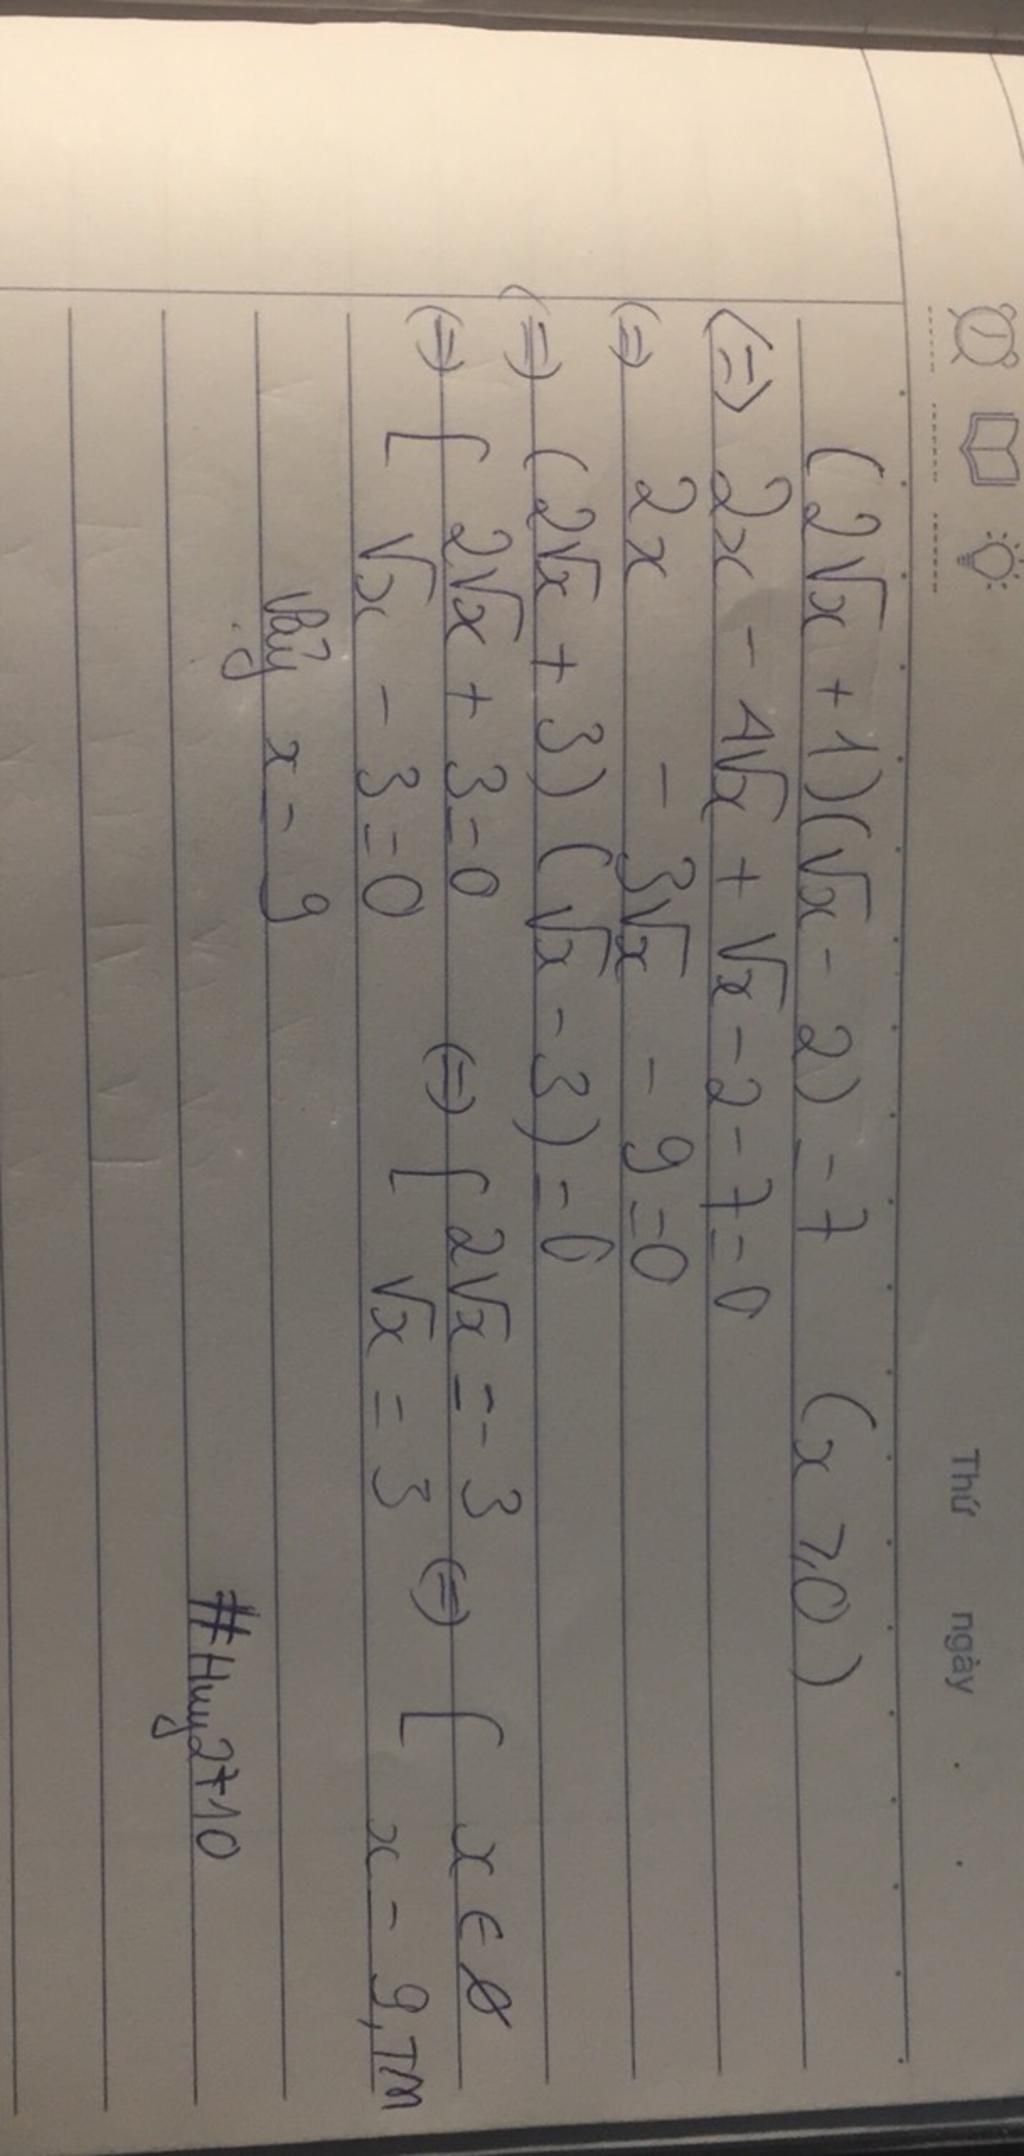 Thứ ngày
(2√x + 1)(√x - 2) = 7 (x ⩾ 0)
(=) 2x - 4√x + √x - 2 - 7 = 0
(=) 2x - 3√x - 9 = 0
(=) (2√x + 3)(√x - 3) = 0
(=) [ 2√x + 3 = 0 (=) [ 2√x = -3 (=) [ x ∈ ∅
√x - 3 = 0 √x = 3 x = 9, TM
Vậy x = 9
#Huy2710